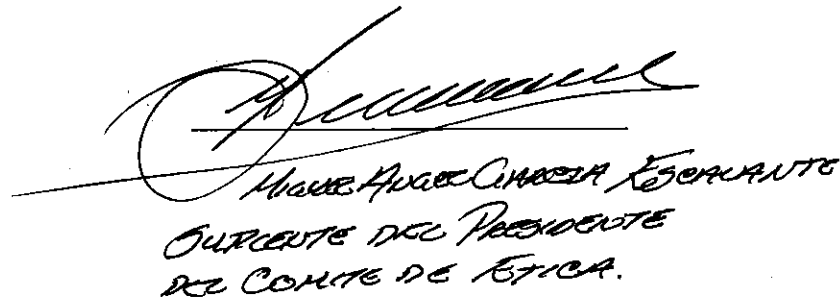 Miguel Angel García Escalante
Suplente del Presidente
del Comite de Etica.